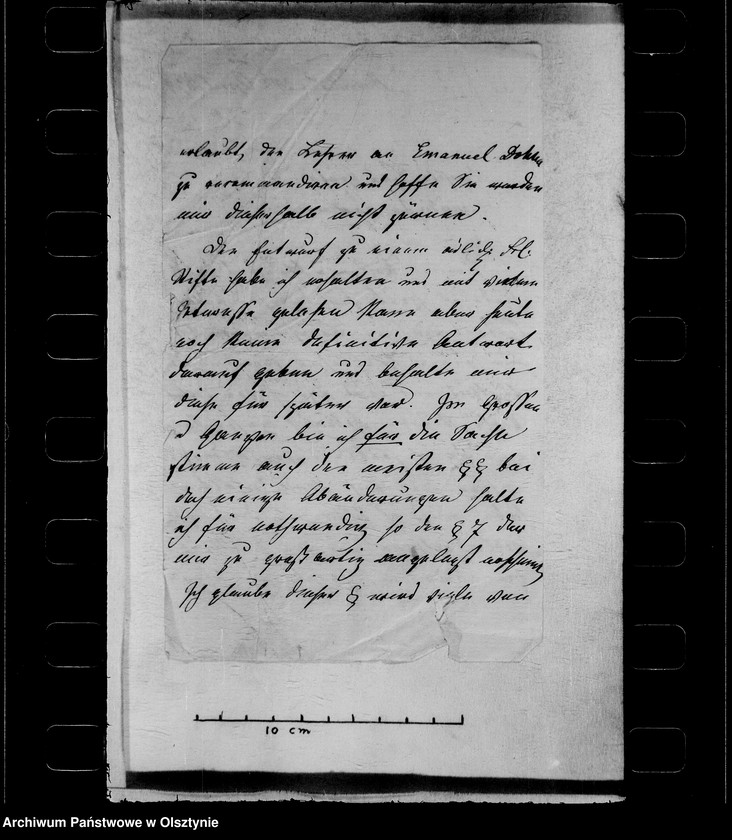 erlaubt, den Lehrer an Emanuel
zu recommandiren und hoffe Sie werden
mir dieserhalb nicht zürnen.
Den Entwurf zu einem adlich.
Stifte habe ich erhalten und mit vielem
Interesse gelesen kann aber heute
noch keine definitive Antwort
darauf geben und behalte mir
diese für später vor. Im Grossen
u Ganzen bin ich für die Sache
stimme auch den meisten §§ bei
doch einige Abänderungen halte
ich für nothwendig so den § 7 der
mir zu großartig angelegt erscheint
Ich glaube dieser § wird viele von
10 cm
Archiwum Państwowe w Olsztynie